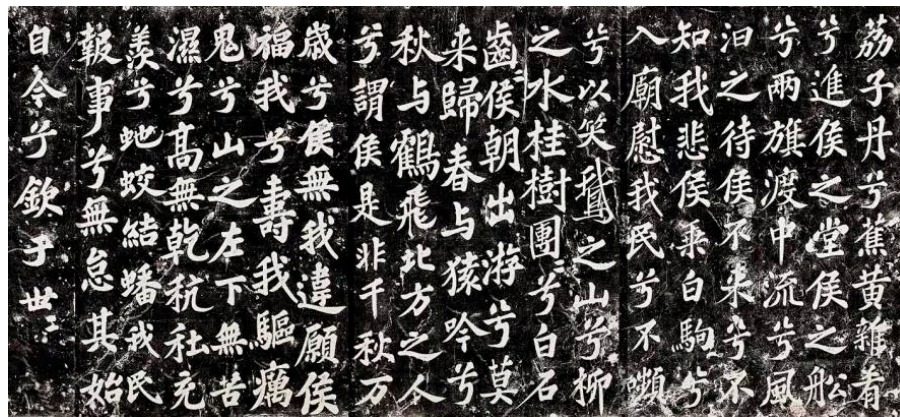 荔子丹兮蕉黃雜肴
兮進侯之堂侯之舩
兮兩旗渡中流兮風
汩之待侯不来兮不
知我悲侯乘白駒兮
入廟慰我民兮不嚬
兮以笑鵞之山兮柳
之水桂樹團兮白石
齒侯朝出游兮莫
来歸春与猿吟兮
秋与鶴飛北方之人
兮謂侯是非千秋万
歲兮侯無我違願侯
福我兮壽我驅癘
鬼兮山之左下無苦
濕兮高無乾秔稌充
羨兮虵蛟結蟠我民
報事兮無怠其始
自今兮欽于世〻